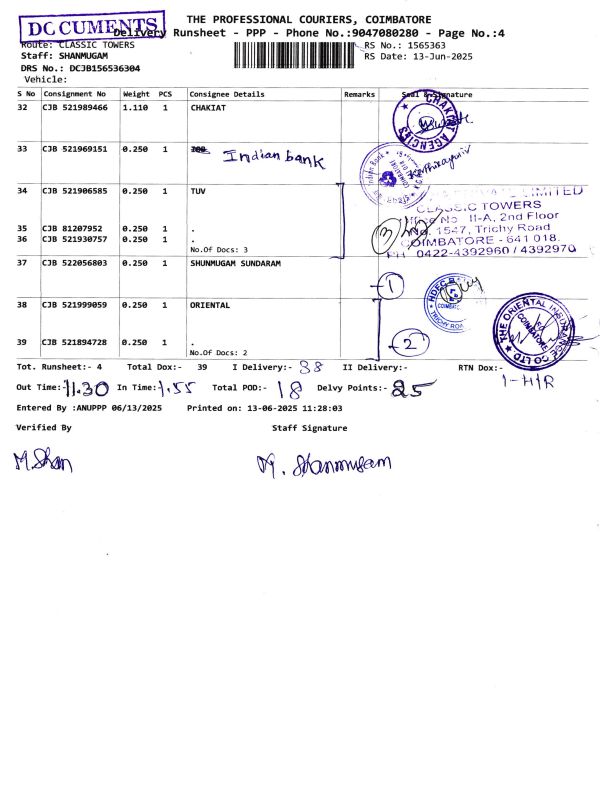 DOCUMENTS
THE PROFESSIONAL COURIERS, COIMBATORE
Delivery Runsheet - PPP - Phone No.:9047080280 - Page No.:4
Route: CLASSIC TOWERS RS No.: 1565363
Staff: SHANMUGAM RS Date: 13-Jun-2025
DRS No.: DCJB156536304
Vehicle:
S No Consignment No Weight PCS Consignee Details Remarks Seal & Signature
32 CJB 521989466 1.110 1 CHAKIAT
CHAKIAT AGENCIES
33 CJB 521969151 0.250 1 Indian bank
Indian Bank
34 CJB 521906585 0.250 1 TUV
LIMITED
CLASSIC TOWERS
Office No II-A, 2nd Floor
No. 1547, Trichy Road
COIMBATORE - 641 018.
PH 0422-4392960 / 4392970
35 CJB 81207952 0.250 1 .
36 CJB 521930757 0.250 1 .
No.Of Docs: 3 3
37 CJB 522056803 0.250 1 SHUNMUGAM SUNDARAM
1
HDFC B
COIMBATORE
TRICHY ROAD
38 CJB 521999059 0.250 1 ORIENTAL
THE ORIENTAL INSURANCE CO LTD
COIMBATORE
39 CJB 521894728 0.250 1 .
No.Of Docs: 2 2
Tot. Runsheet:- 4 Total Dox:- 39 I Delivery:- 38 II Delivery:- RTN Dox:-
1-H/R
Out Time:- 11.30 In Time:- 1.55 Total POD:- 18 Delvy Points:- 25
Entered By :ANUPPP 06/13/2025 Printed on: 13-06-2025 11:28:03
Verified By Staff Signature
M. Shan M. Shanmugam